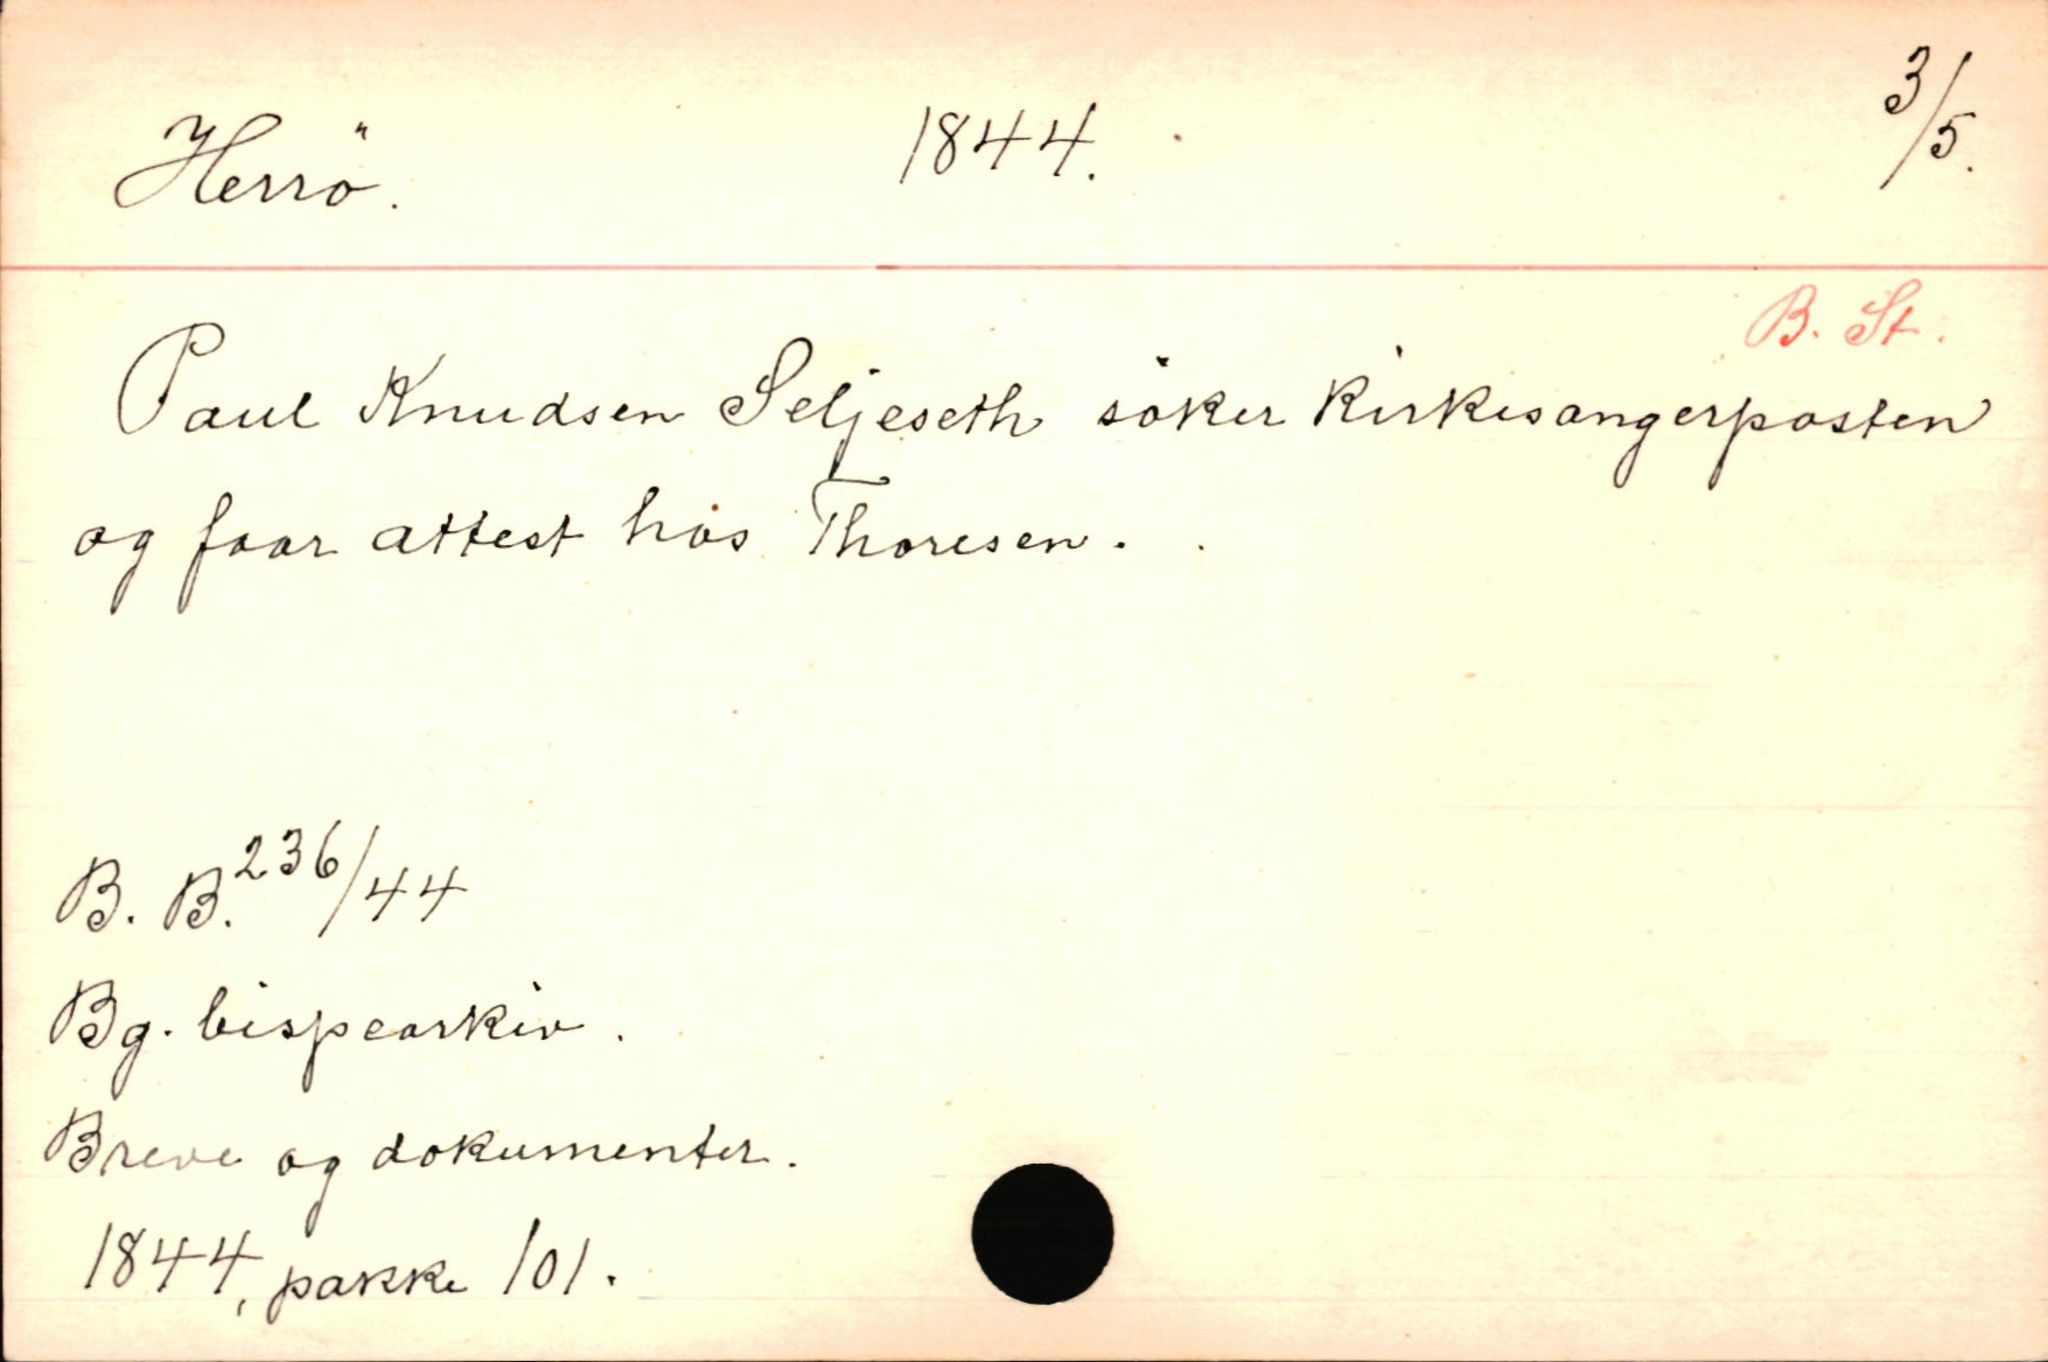 Herrö. 1844. 3/5.
B. St.
Paul Knudsen Seljeseth söker kirkesangerposten
og faar attest hos Thoresen.
B. B. 236/44
Bg. bispearkiv.
Breve og dokumenter.
1844, pakke 101.